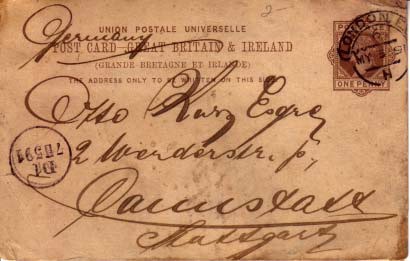 2-
UNION POSTALE UNIVERSELLE
Germany
POST CARD - GREAT BRITAIN & IRELAND
(GRANDE BRETAGNE ET IRLANDE)
THE ADDRESS ONLY TO BE WRITTEN ON THIS SIDE
LONDON
ONE PENNY
Otto Kurz Esqre
2 Werderstr.
Cannstatt
Stuttgart